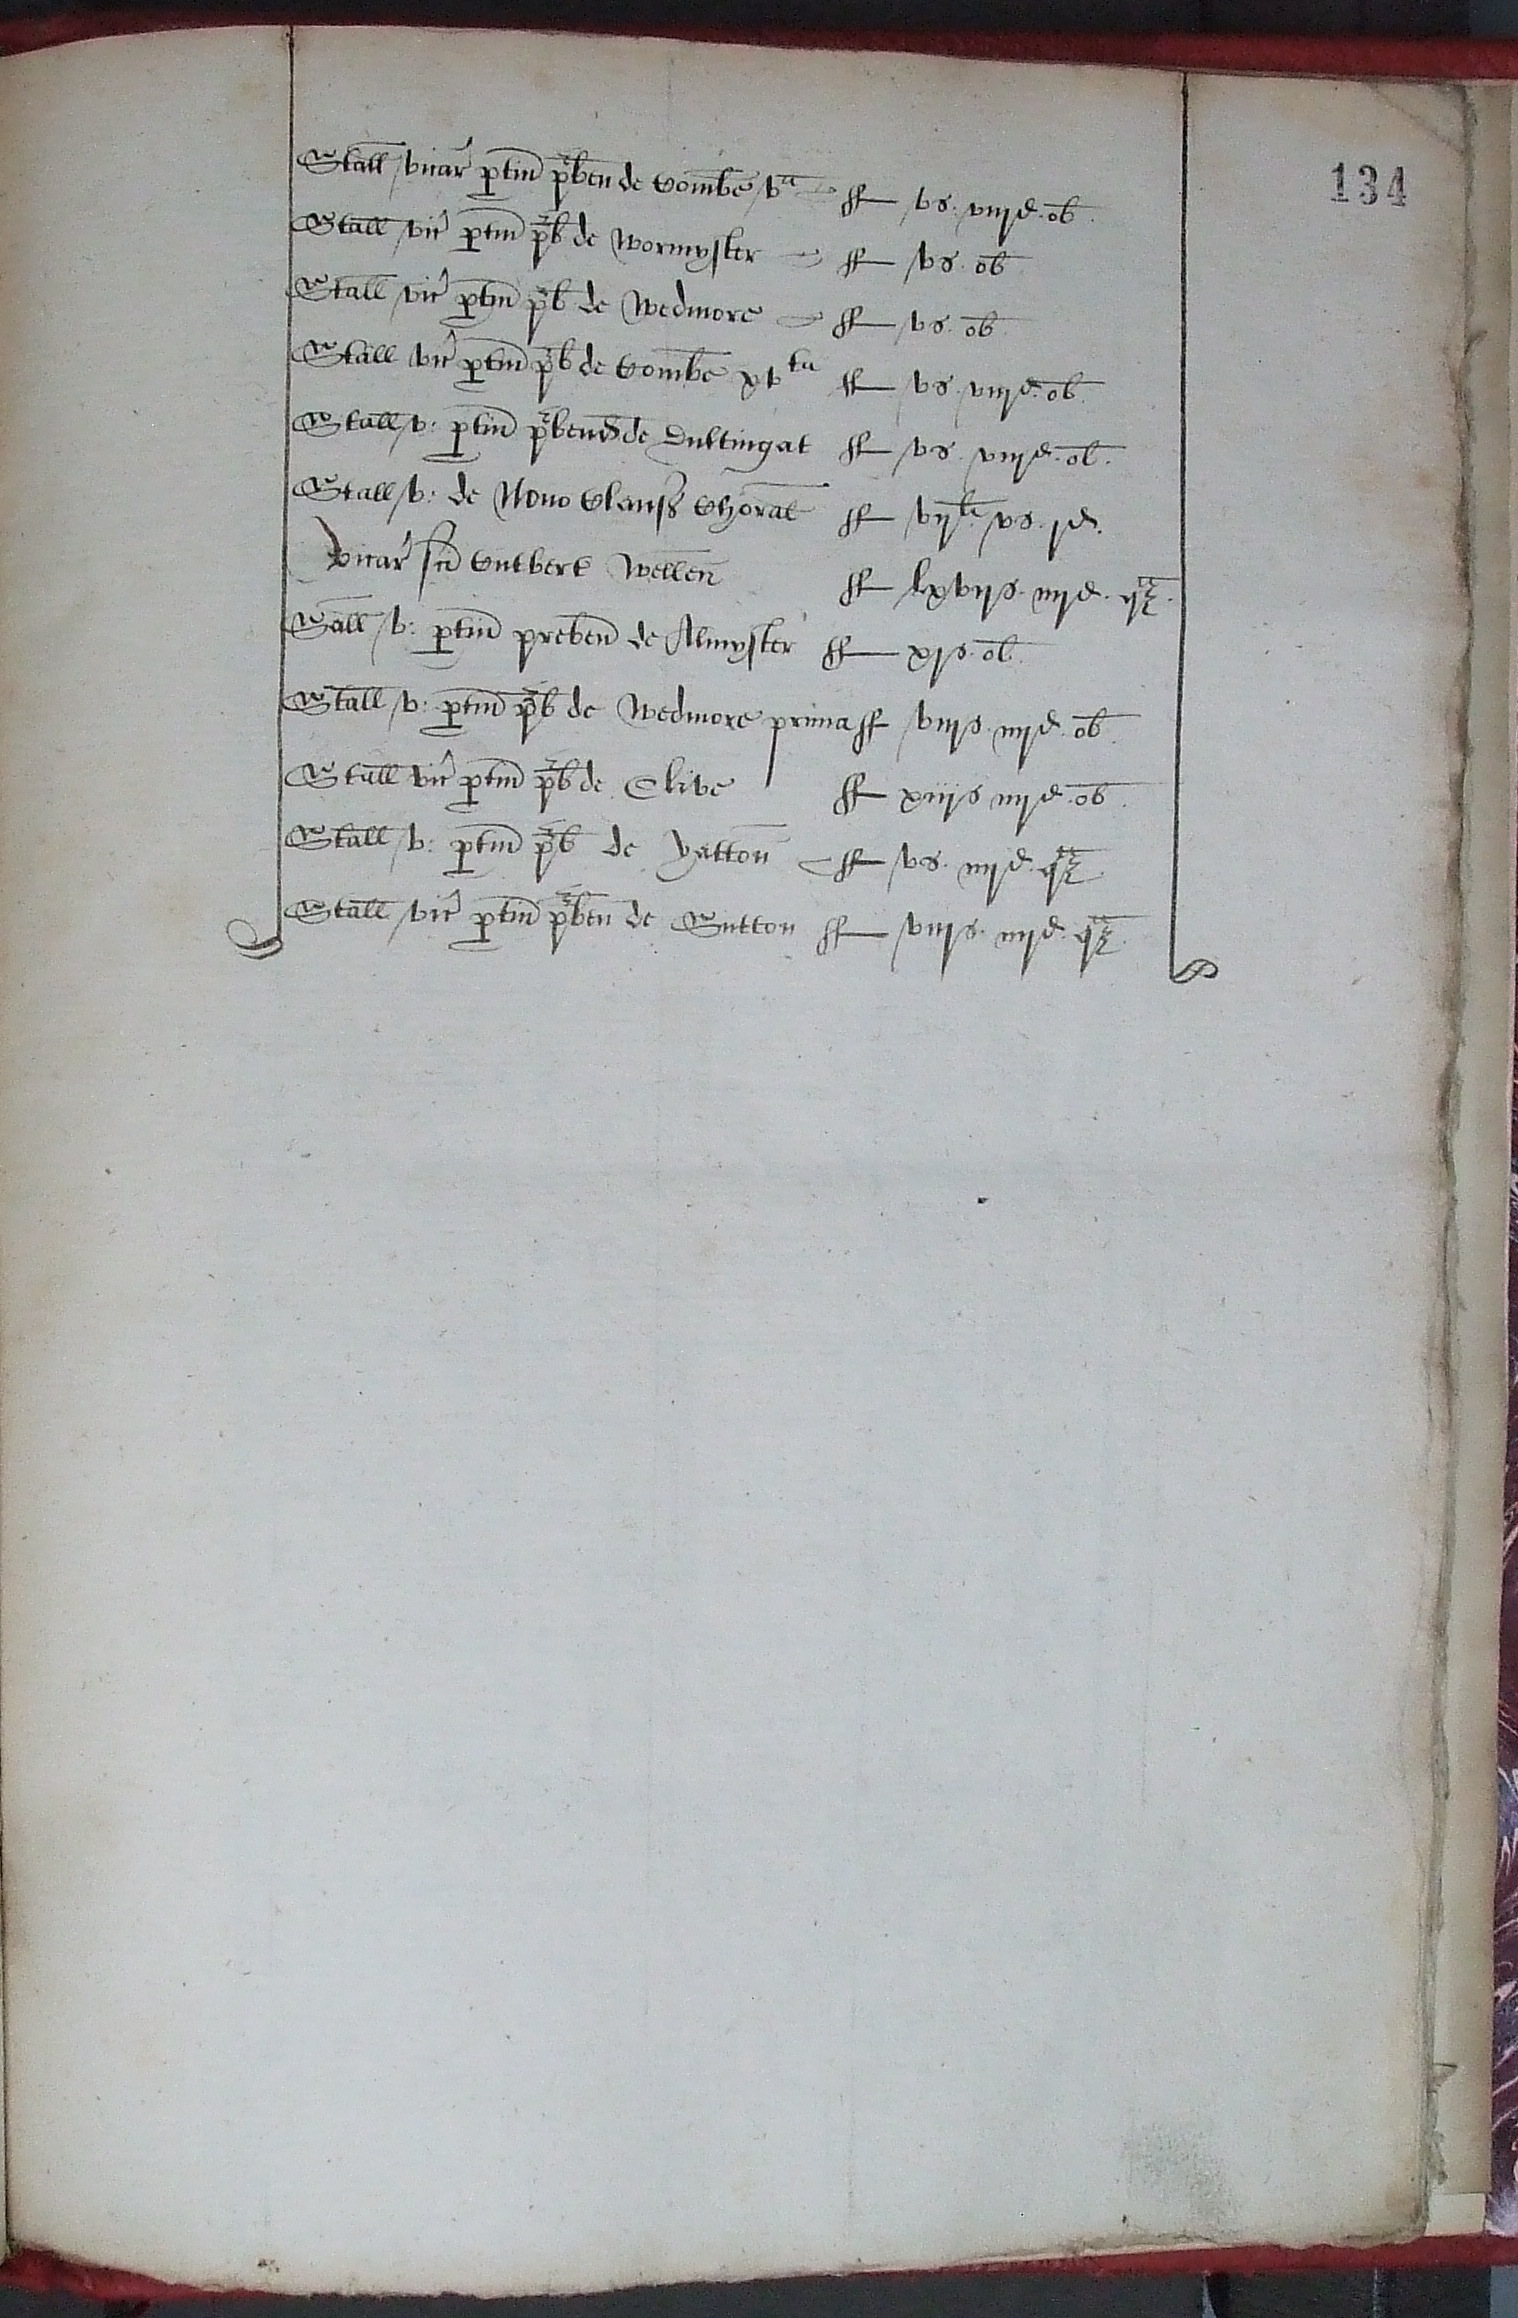 134
Stall vicar ptin prben de Combe va ff vs. viijd. ob.
Stall vic ptin preb de Wormyster ff vs. ob
Stall vic ptin preb de Wedmore ff vs. ob
Stall vic ptin preb de Combe xvta ff vs. viijd. ob.
Stall v: ptin prbend de Dultingat ff vs. viijd. ob.
Stall v: de Novo Claus Chorat ff vijli. vs. jd.
Vicar sci Cutbert Wellen ff lxvijs. iiijd. q
Sall v: ptin preben de Ilmyster ff xjs. ob.
Stall v: ptin preb de Wedmore prima ff viijs. iiijd. ob
Stall vic ptin preb de Clive ff xiijs iiijd. ob.
Stall v: ptin preb de Yatton ff vs. iiijd. q
Stall vic ptin prben de Sutton ff viijs. iiijd. q